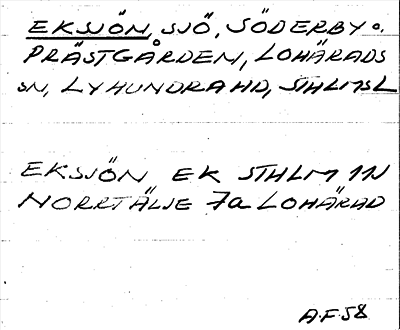 EKSJÖN, SJÖ, SÖDERBY o.
PRÄSTGÅRDEN, LOHÄRADS
SN, LYHUNDRA HD, STHLMSL
EKSJÖN EK STHLM 11N
NORRTÄLJE 7a LOHÄRAD
A.F.58